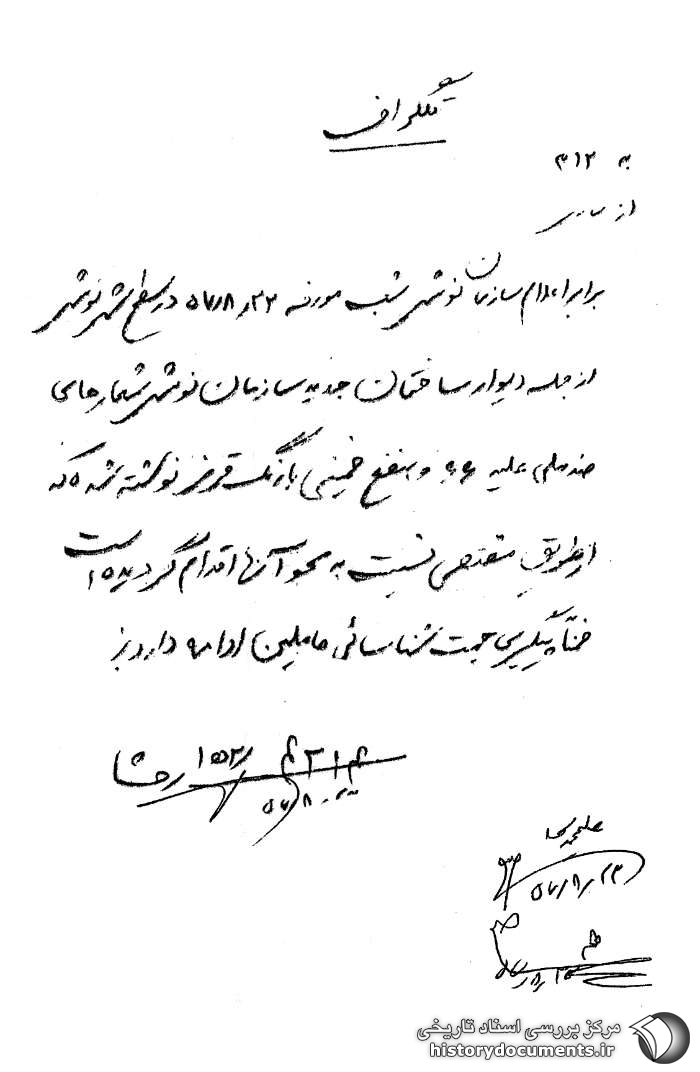 تلگراف
به ۳۱۲
از ساری
برابر اعلام سازمان نوشهر شب مورخه ۵۷/۸/۲۲ در سطح شهر نوشهر
از جمله دیوار ساختمان جدید سازمان نوشهر شعارهای
ضد ملی علیه و بنفع خمینی با رنگ قرمز نوشته شده که
از طریق مقتضی نسبت به محو آنها اقدام گردیده است
ضمناً پیگیری جهت شناسائی عاملین ادامه دارد
۵۷/۸/
۵۷/۸/۲۳
مرکز بررسی اسناد تاریخی
historydocuments.ir